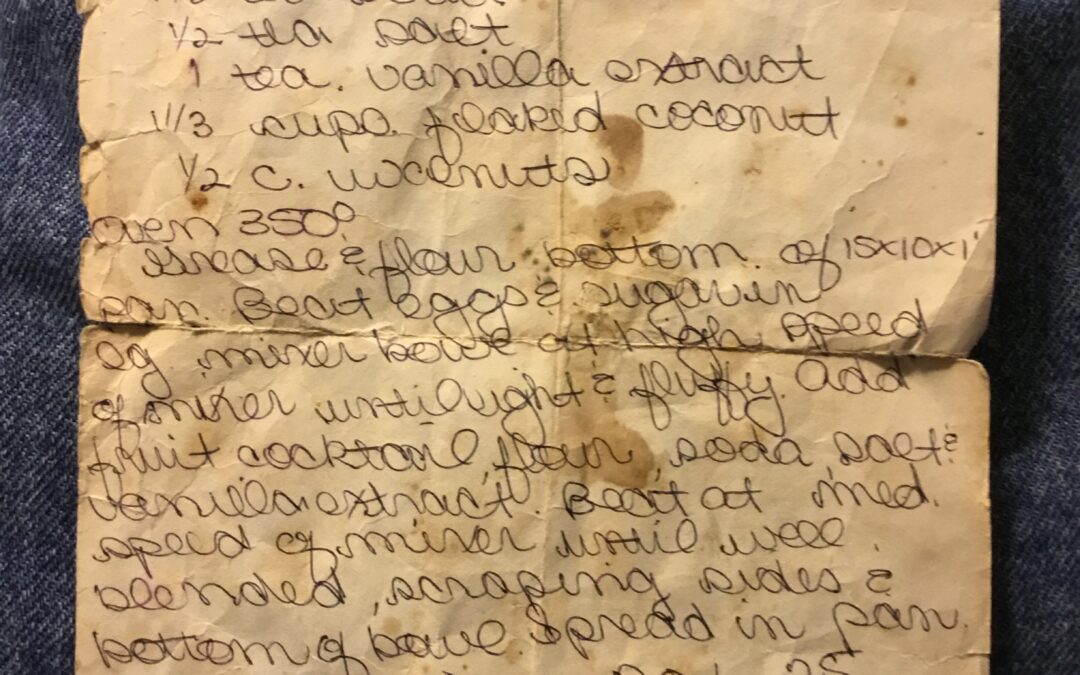 ½ tea salt
1 tea. vanilla extract
1 1/3 cups flaked coconut
½ c. walnuts
oven 350°
Grease & flour bottom of 15x10x1"
pan. Beat eggs & sugar in
lg. mixer bowl at high speed
of mixer until light & fluffy. Add
fruit cocktail, flour, soda, salt &
vanilla extract. Beat at med.
speed of mixer until well
blended, scraping sides &
bottom of bowl. Spread in pan.
25